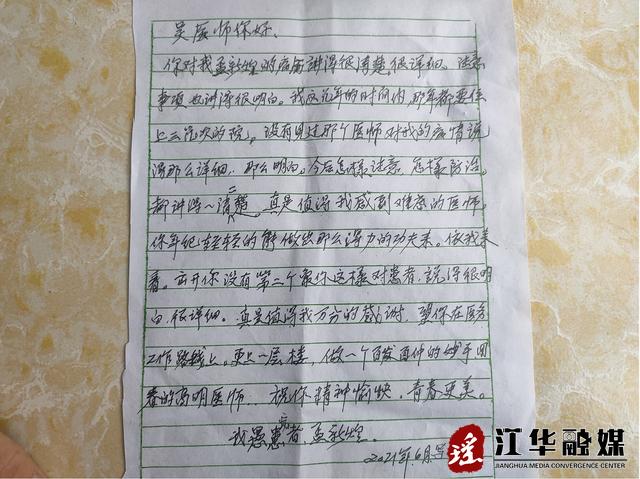 吴医师你好.
你对我孟新煌的病历讲得很清楚,很详细。注意
事项也讲得很明白。我这几年的时间内,那年都要住
上二几次的院,没有见过那个医师对我的病情说
得那么详细..那么明白。今后怎样注意 怎样防治,
都讲得一清二楚。真是值得我感到难忘的医师,
你年纪轻轻的能做出那么得力的功夫来。依我来
看。离开你没有第二个象你这样对患者说得很明
白,很详细。真是值得我万分的感谢,望你在医务
工作路线上,更上一层楼,做一个百发百中的妙手回
春的高明医师。祝你精神愉快,青春更美。
我愚患者,孟新煌.
2021年6月
瑶 江华融媒
JIANGHUA MEDIA CONVERGENCE CENTER